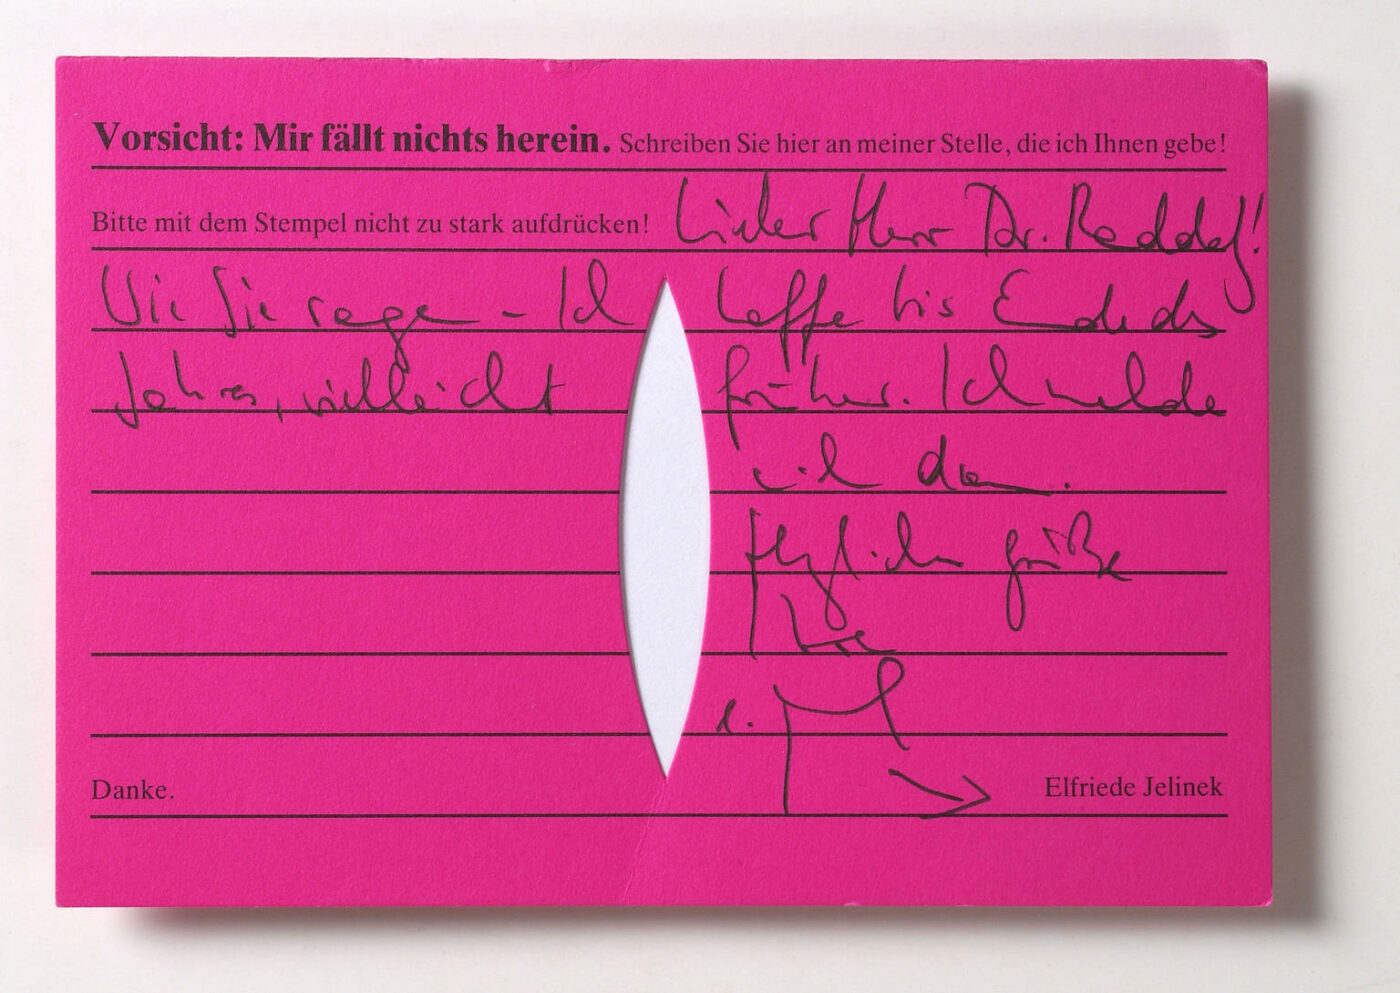 Vorsicht: Mir fällt nichts herein. Schreiben Sie hier an meiner Stelle, die ich Ihnen gebe!
Bitte mit dem Stempel nicht zu stark aufdrücken! Lieber Herr Dr.
Wie Sie sagen – Ich hoffe bis Ende des
Jahres, vielleicht früher. Ich melde
mich dann.
Herzliche Grüße
Ihre
e. j
Danke. Elfriede Jelinek